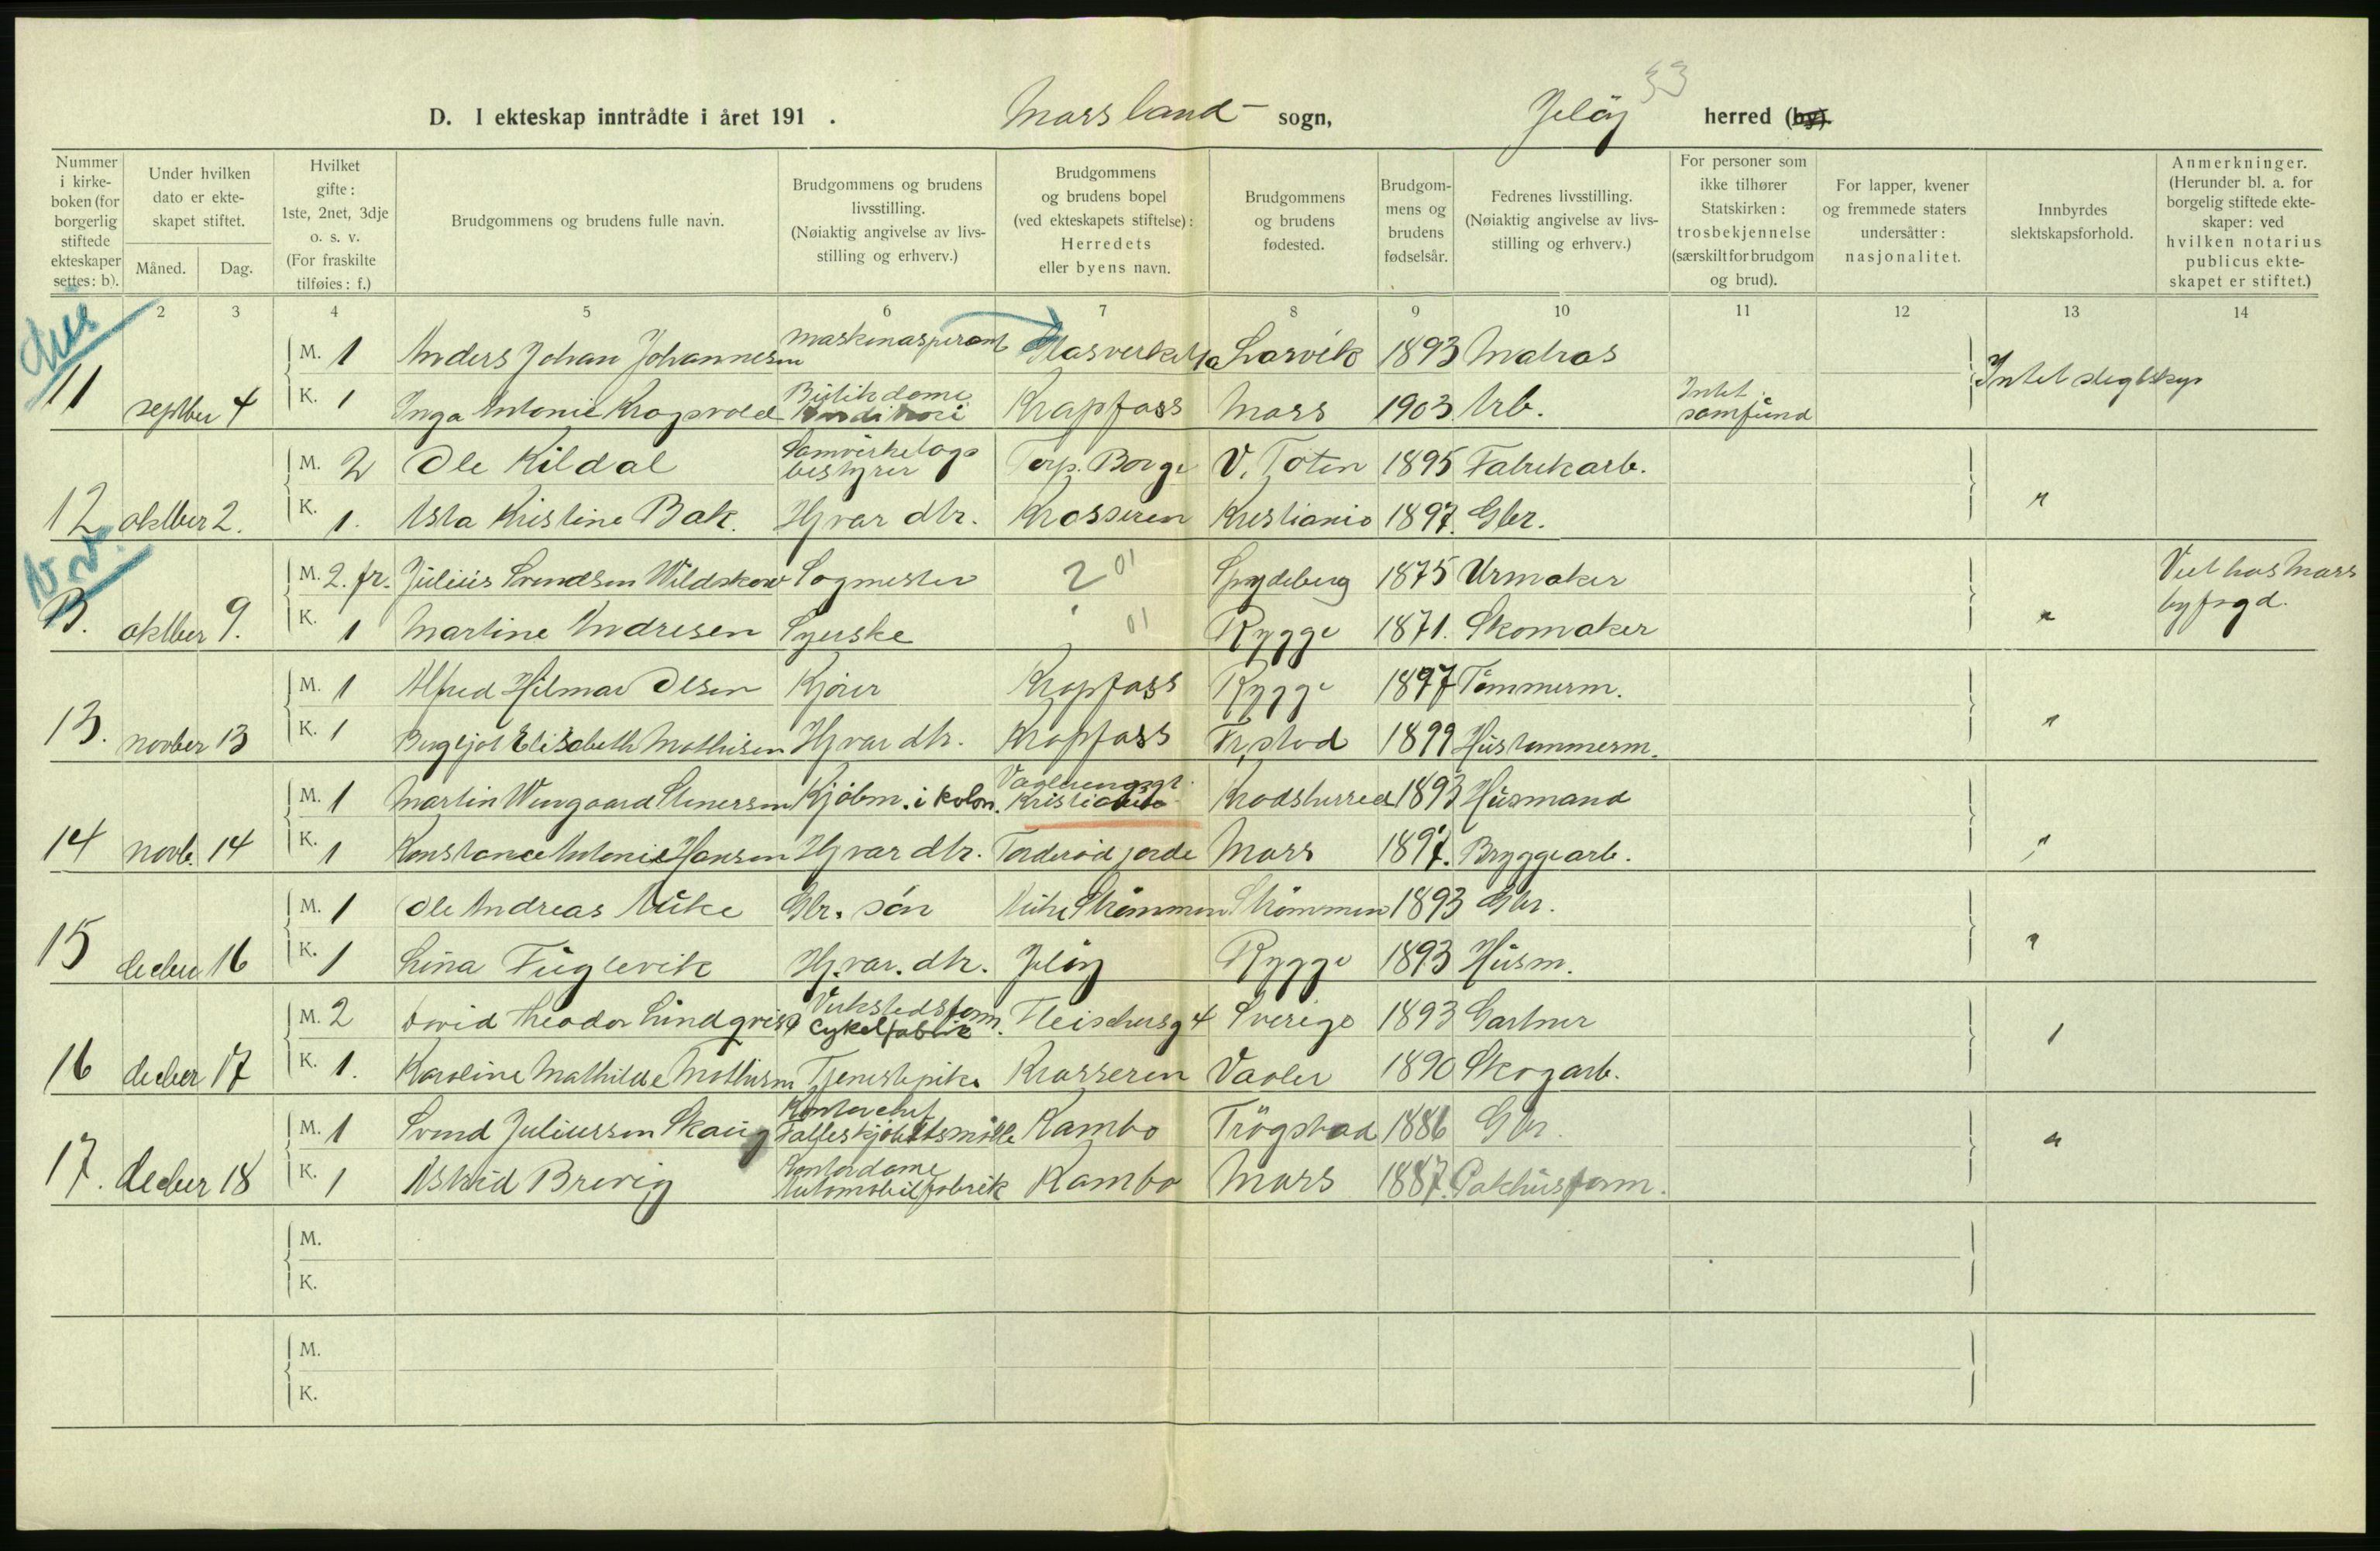 33
D. I ekteskap inntrådte i året 191 . Moss land- sogn, Jeløy herred (by).
Nummer i kirke-boken (for borgerlig stiftede ekteskaper settes: b).
Under hvilken dato er ekte-skapet stiftet.
Måned. Dag.
Hvilket gifte: 1ste, 2net, 3dje o. s. v. (For fraskilte tilføies: f.)
Brudgommens og brudens fulle navn.
Brudgommens og brudens livsstilling. (Nøiaktig angivelse av livs-stilling og erhverv.)
Brudgommens og brudens bopel (ved ekteskapets stiftelse): Herredets eller byens navn.
Brudgommens og brudens fødested.
Brudgom-mens og brudens fødselsår.
Fedrenes livsstilling. (Nøiaktig angivelse av livs-stilling og erhverv.)
For personer som ikke tilhører Statskirken: trosbekjennelse (særskilt for brudgom og brud).
For lapper, kvener og fremmede staters undersåtter: nasjonalitet.
Innbyrdes slektskapsforhold.
Anmerkninger. (Herunder bl. a. for borgelig stiftede ekte-skaper: ved hvilken notarius publicus ekte-skapet er stiftet.)
2 3 4 5 6 7 8 9 10 11 12 13 14
M. 1 Anders Johan Johannesen Maskinaspirant Larvik 1893 Matros
11 septber 4 K. 1 Inga Antonie Kragsvold Butikdame Krapfoss Moss 1903 Arb. Intet samfund Intet slegtskap
M. 2 Ole Kildal Samvirkelags bestyrer Torp. Borge V. Toten 1895 Fabrikarb.
12 oktber 2. K. 1. Asta Kristine Bak. Hj var dtr. Krosseren Kristiania 1897. Gbr. "
M. 2. fr. Julius Svendsen Wildskow Sagmester 2 01 Spydeberg 1875 Urmaker Viet hos Moss byfogd.
B. oktber 9. K. 1 Martine Andresen Syerske 01 Rygge 1871. Skomaker "
M. 1 Alfred Hilmar Olsen Kjører Krapfoss Rygge 1897 Tømmerm.
13. novber 13 K. 1 Bergljot Elisabeth Mathisen Hj var dtr. Krapfoss Fr,stad 1899 Hustømmerm. "
M. 1 Martin Wengaard Stenersen Kjøbm. i kolon. Kristiania Krødsherred 1893 Husmand
14 novb. 14 K. 1 Konstance Antonie Hansen Hj var dtr. Torderød jorde Moss 1897. Bryggearb. "
M. 1 Ole Andreas Auke Gbr. søn Strømmen Strømmen 1893 Gbr.
15 decber 16 K. 1 Lina Fuglevik Hj. var. dtr. Jeløy Rygge 1893 Husm. "
M. 2 David Theodor Lindqvist Verkstedsform. Cykelfabrik Fleischersg 4 Sverige 1893 Gartner
16 decber 17 K. 1. Karoline Mathilde Mathisen Tjenestepike Krosseren Vaaler 1890 Skogarb. "
M. 1 Svend Juliussen Skaug Kontorchef Felleskjøpetsmølle Kambo Trøgstad 1886 Gbr.
17. decber 18 K. 1 Astrid Brevig Kontordame Automobilfabrik Kambo Moss 1887. Pakhusform. "
M.
K.
M.
K.